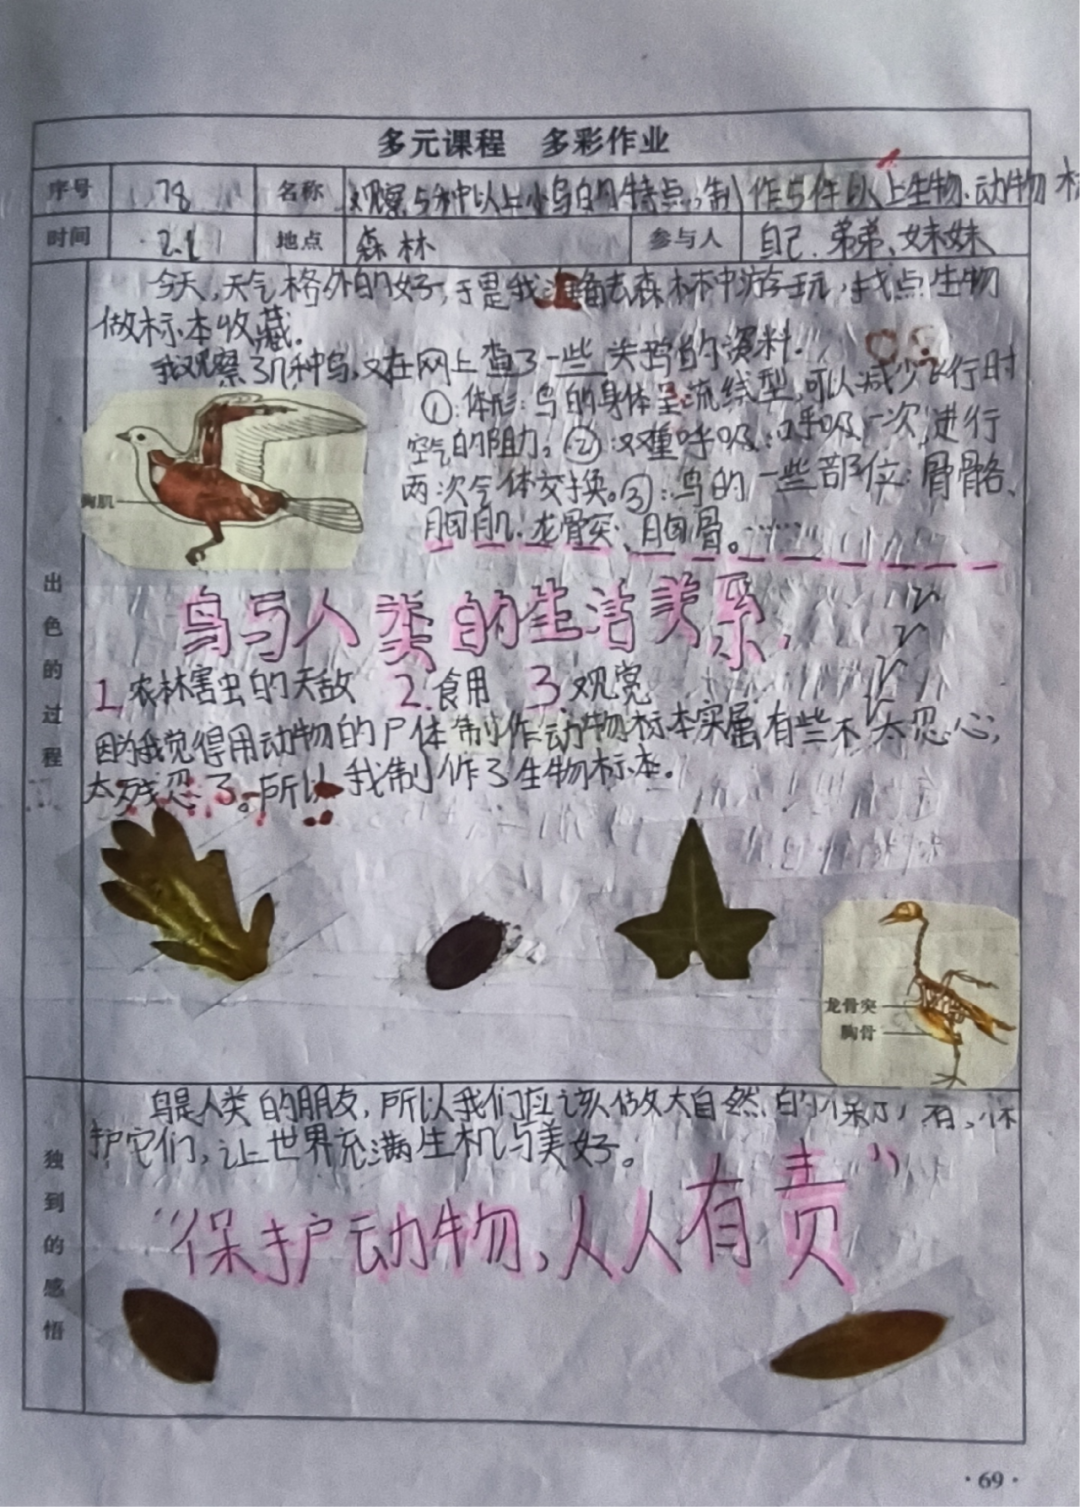 多元课程 多彩作业
序号 78 名称 观察5种以上小鸟的特点,制作5件以上生物、动物标
时间 2.1 地点 森林 参与人 自己、弟弟、妹妹
今天,天气格外的好,于是我准备去森林中游玩,找点生物
做标本收藏。
我观察了几种鸟,又在网上查了一些关鸟的资料.
①:体形:鸟的身体呈流线型,可以减少飞行时
空气的阻力。②:双重呼吸:呼吸一次,进行
两次气体交换。③:鸟的一些部位:骨骼、
胸肌、龙骨突、胸骨。……
胸肌
鸟与人类的生活关系.
1.农林害虫的天敌 2.食用 3.观赏
因为我觉得用动物的尸体制作动物标本实属有些不太忍心,
太残忍了。所以我制作了生物标本。
龙骨突
胸骨
出色的过程
鸟是人类的朋友,所以我们应该做大自然的保
护它们,让世界充满生机与美好。
“保护动物,人人有责”
独到的感悟
·69·